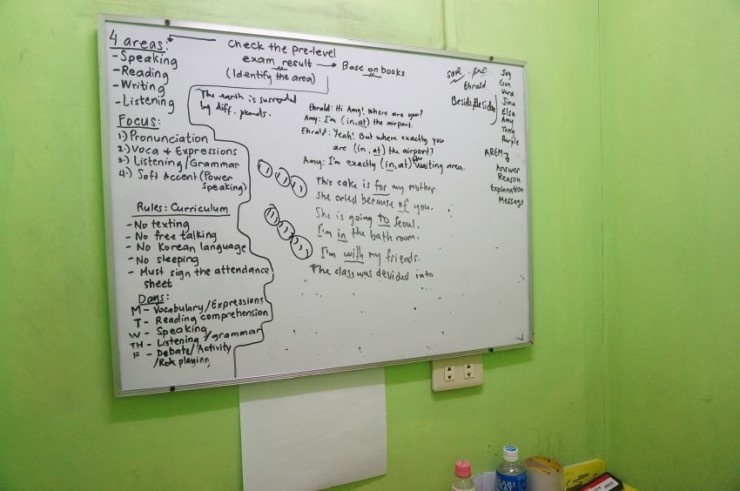 4 areas:
-Speaking
-Reading
-Writing
-Listening
check the pre-level
exam result → Base on books
(Identify the area)
Focus:
1.) Pronunciation
2.) Voca + Expressions
3.) Listening/Grammar
4.) Soft Accent (Power
Speaking)
Rules: Curriculum
- No texting
- No free talking
- No Korean language
- No sleeping
- Must sign the attendance
sheet
Days:
M - Vocabulary/Expressions
T - Reading comprehension
W - Speaking
TH - Listening/grammar
F - Debate/Activity
/Role playing
The earth is surrounded
by diff.
Ehrald: Hi Amy! Where are you?
Amy: I'm (in, at) the airport.
Ehrald: Yeah! But where exactly you
are (in, at) the airport?
Amy: I'm exactly (in, at) the waiting area.
This cake is for my mother.
She cried because of you.
She is going to Seoul.
I'm in the bath room.
I'm with my friends.
The class was devided into
Ehrald
Joy
Gon
Vera
Jina
Elsa
Amy
Tony
Purple
AREM
Answer
Reason
Explanation
Message